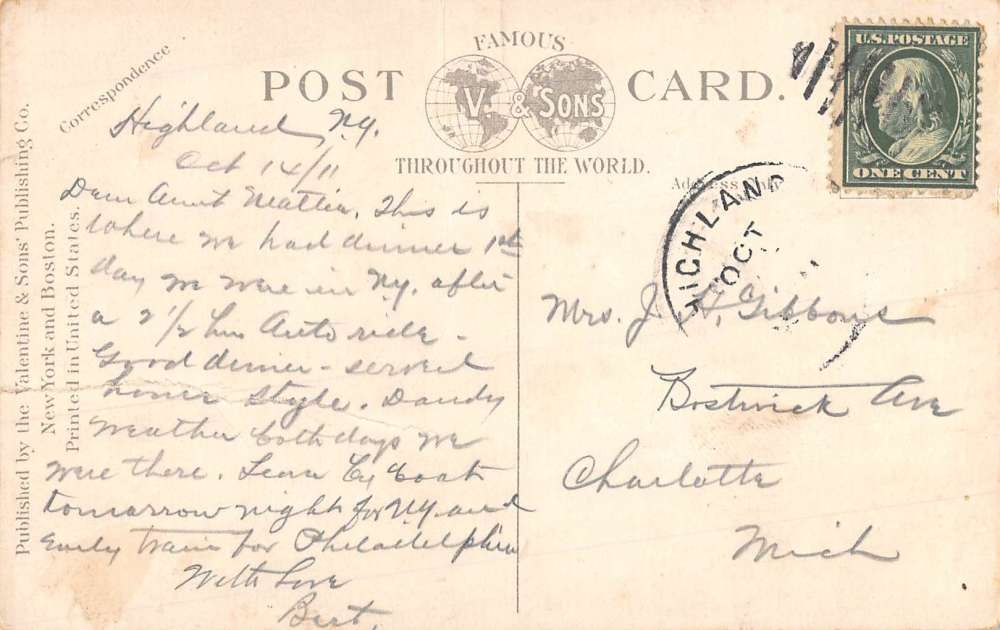 FAMOUS
POST CARD.
V. & SONS
THROUGHOUT THE WORLD.
U.S. POSTAGE
ONE CENT
Correspondence
Published by the Valentine & Sons' Publishing Co.
New York and Boston.
Printed in United States.
Highland, N.Y.
Oct 14/11
Dear Aunt Mattie. This is
where we had dinner 1st
day we were in N.Y. after
a 2 1/2 hrs Auto ride -
Good dinner - served
home style. Dandy
weather both days we
were there. Leave by boat
tomarrow night for N.Y. and
early train for Philadelphia
With Love
Bert.
Address
HIGHLAND
OCT
Mrs. J. H. Gibbons
Bostwick Ave
Charlotte
Mich